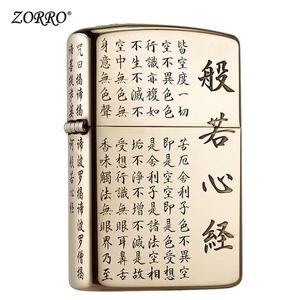 ZORRO®
般若心経
皆空度一切苦厄舍利子色不異空
空不異色色即是空空即是色受想
行識亦複如是舍利子是諸法空相
不生不滅不垢不淨不增不減是故
空中無色無受想行識無眼耳鼻舌
身意無色聲香味觸法無眼界乃至
咒曰揭諦揭諦波羅揭諦波羅僧揭
諦菩提薩婆